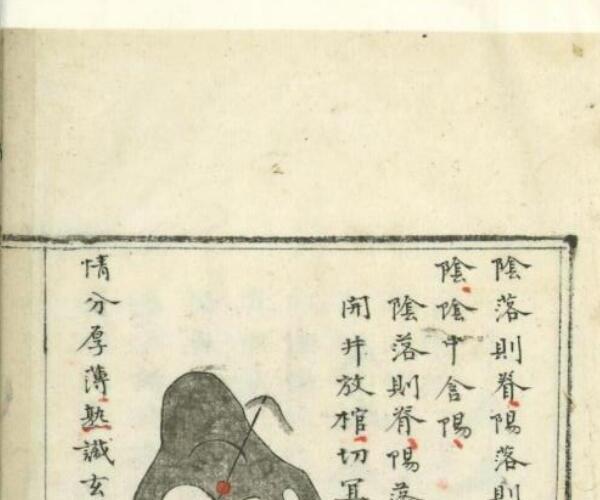 陰落則脊陽落則
陰陰中含陽
陰落則脊陽落
開井放棺切冥
情分厚薄熟識玄